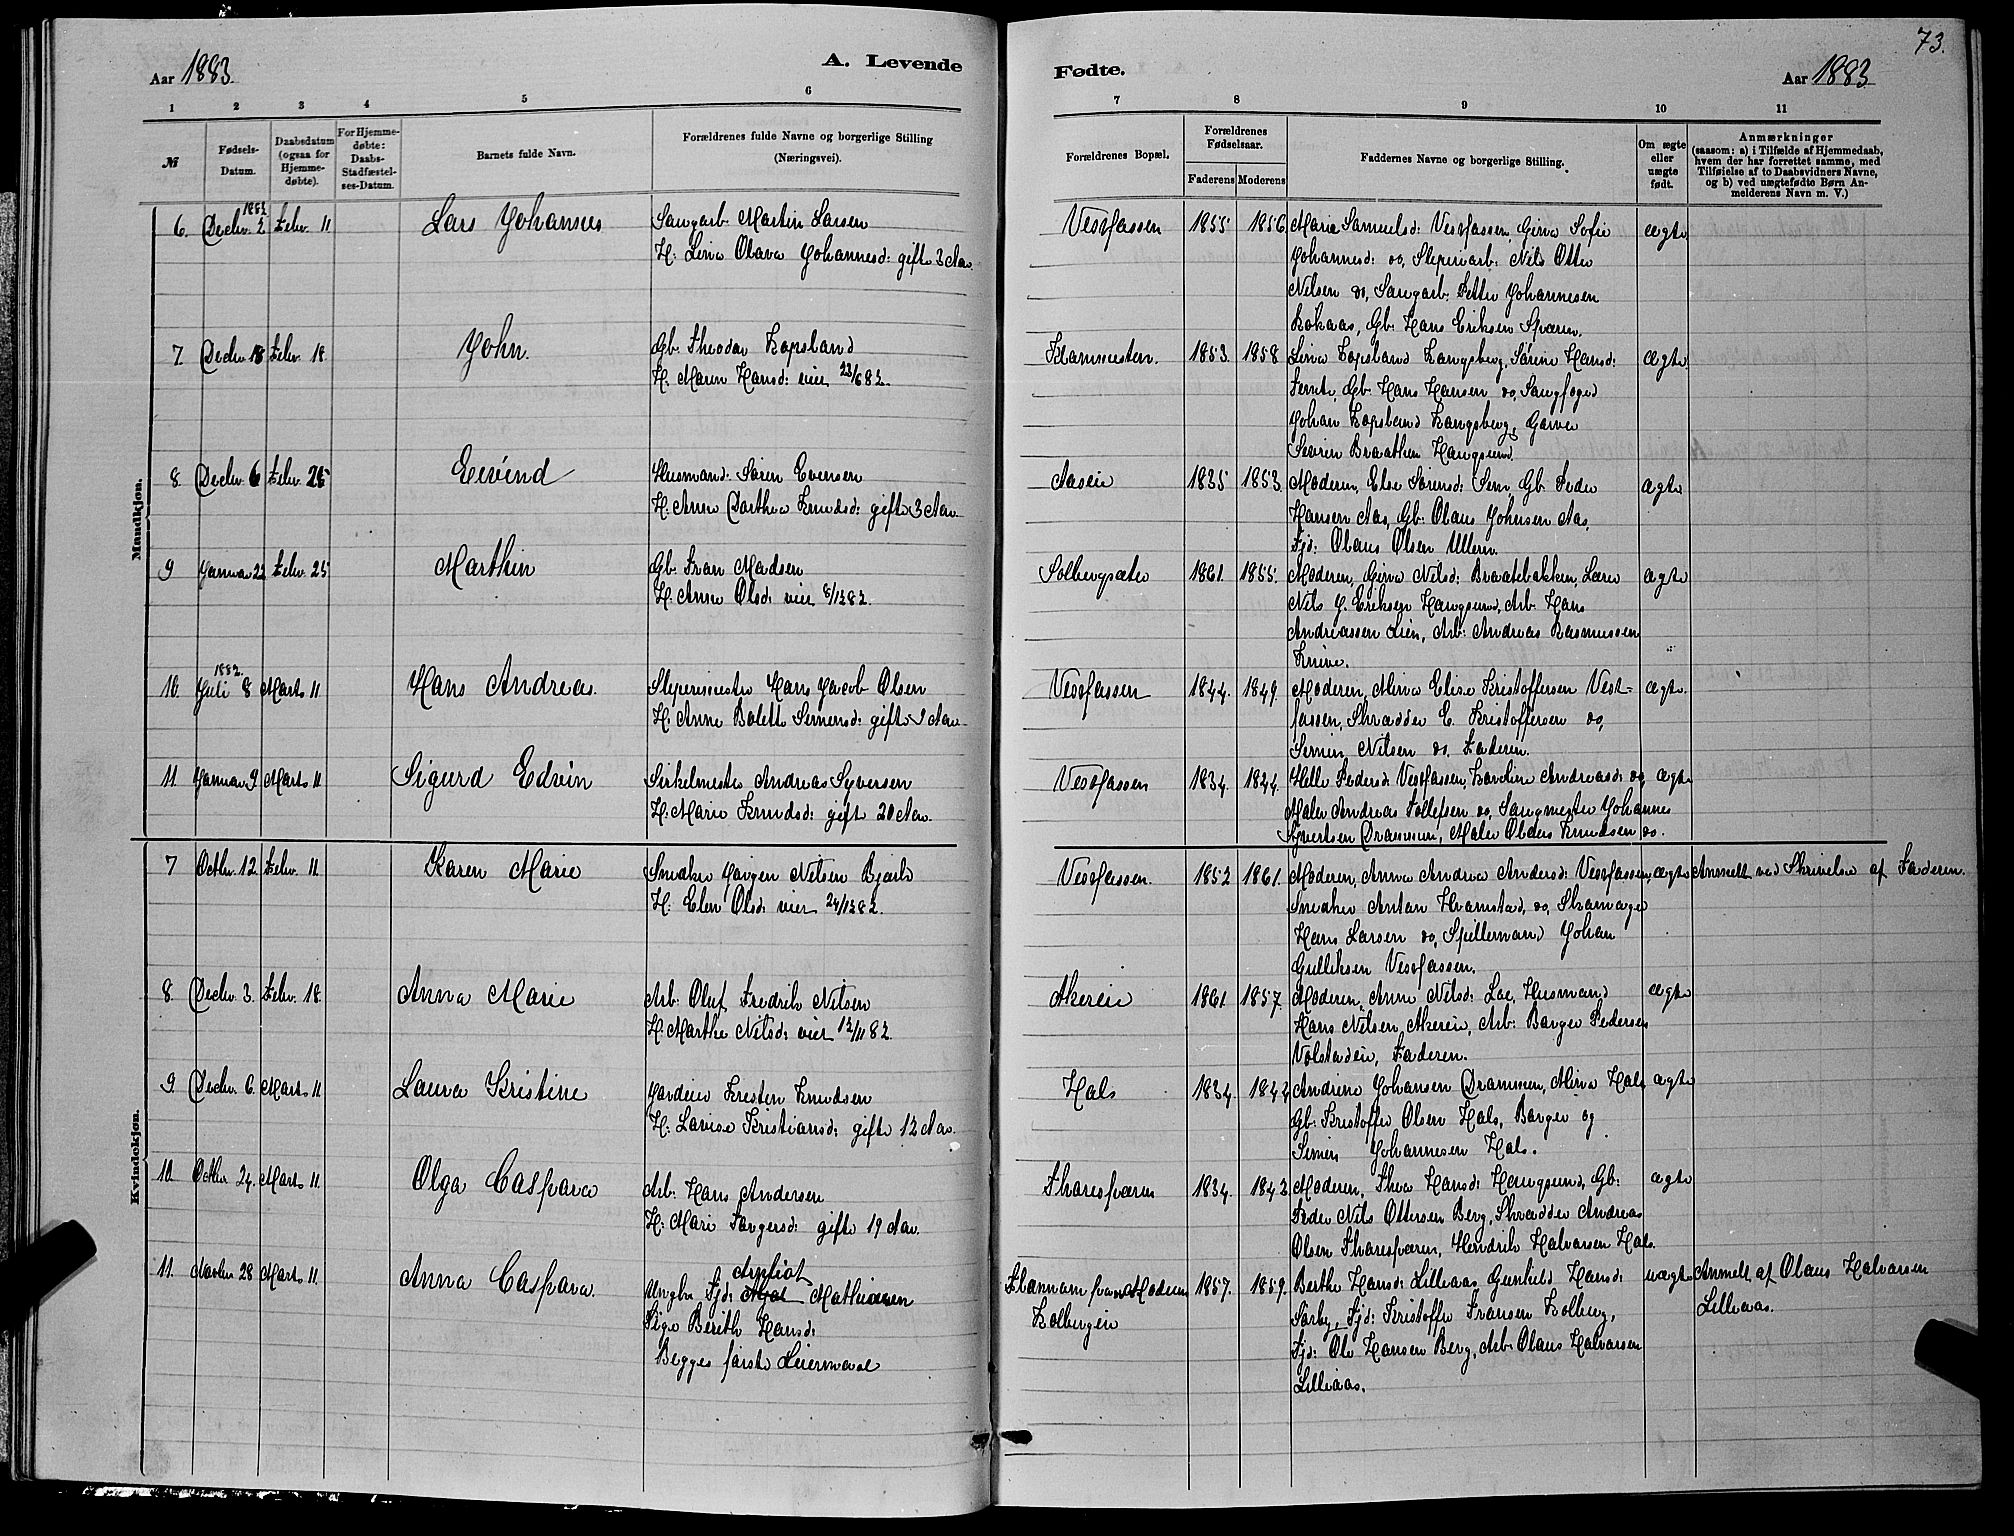 73.
Aar 1883
A. Levende
Fødte.
Aar 1883
1 2 3 4 5 6
7 8 9 10 11
№
Fødsels-
Datum.
Daabsdatum
(ogsaa for
Hjemme-
døbte).
For Hjemme-
døbte:
Daabs-
Stadfæstel-
ses-Datum.
Barnets fulde Navn.
Forældrenes fulde Navne og borgerlige Stilling
(Næringsvei).
Forældrenes Bopæl.
Forældrenes
Fødselsaar.
Faderens Moderens
Faddernes Navne og borgerlige Stilling.
Om ægte
eller
uægte
født.
Anmærkninger
(saasom: a) i Tilfælde af Hjemmedaab,
hvem der har forrettet samme, med
Tilføielse af to Daabsvidners Navne,
og b) ved uægtefødte Børn An-
melderens Navn m. V.)
Mandkjøn.
6. 1882 Decbr. 2 Febr. 11 Lars Johannes
Saugarb. Martin Larsen
H: Lina Olava Johannesd: gifte 3 Aar.
Vestfossen 1855 1856
Maria Samuelsd: Vestfossen, Girva Sofie
Johannesd: do, Sliperiarb: Nils Otto
Nilsen do, Saugarb. Petter Johannesen
Kokaas, Gb. Hans Eriksen Sparen.
ægte
7 Decbr. 18 Febr. 18. John.
Gb. Theodor Kopsland
H. Maren Hansd: viet 23/6 82.
1853. 1858.
Lina Kopsland Kongsberg, Sørine Hansd:
Gb. Hans Hansen do, Saugfoged
Johan Kopsland Kongsberg, Garver
Severin Braathen Haugsund.
ægte
8. Decbr. 6 Febr. 25 Eivind
Husmand Søren Evensen
H. Anne Dorthea Knudsd: gifte 3 Aar.
Aaseie 1835 1853.
Moderen, Else Sørensd: Sem, Gb. Peder
Hansen Aas, Gb. Olaus Johnsen Aas,
Fjd: Olaus Olsen Ullern.
ægte
9 Januar 22 Febr. 25 Marthin
Gb. Iran Madsen
H: Anne Olsd: viet 8/12 82.
Solbergsæter 1861. 1855.
Moderen, Girva Nilsd: Braatebakken, Lærer
Nils J. Eriksen Haugsund, Arb. Hans
Andreassen Lien, Arb: Andreas Rasmussen
Knive.
ægte
10. 1882. Juli 8 Marts 11 Hans Andreas.
Slipermester Hans Jacob Olsen
H. Anne Bolette Simensd: gifte 9 Aar.
Vestfossen 1844. 1849.
Moderen, Mina Elise Kristoffersen Vest-
fossen, Skrædder E. Kristoffersen do,
Simen Nilsen do. Faderen.
ægte.
11. Januar 9. Marts 11 Sigurd Edvin
Sirkelmester Andreas Syversen
H. Marie Knudsd: gift 20 Aar.
Vestfossen 1834. 1844.
Helle Pedersd: Vestfossen, Karoline Andreasd: do,
Maler Andreas Tollefsen do, Saugmester Johannes
Syvertsen Drammen, Maler Olaus Knudsen do.
ægte
Kvindekjøn.
7 Octbr. 12. Febr. 11. Karen Marie
Snedker Jørgen Nilsen Bjærke
H. Elen Olsd: viet 24/12 82.
Vestfossen. 1852 1861.
Moderen, Anna Andrea Andersd: Vestfossen,
Snedker Anton Hramstad, do, Skomager
Hans Larsen do, Spillemand Johan
Gulliksen Vestfossen.
ægte Anmeldt ved Skrivelse af Faderen.
8. Decbr. 3. Febr. 18. Anna Marie
Arb: Oluf Fredrik Nilsen
H. Marthe Nilsd: viet 12/11 82.
Akereie 1861. 1857.
Moderen, Anne Nilsd: Loe, Husmand
Hans Nilsen Akereie, Arb: Borger Pedersen
Volstadeie, Faderen.
ægte
9. Decbr. 6. Marts 11. Laura Kristine
Gardeier Kresten Knudsen
H: Lovise Kristiansd: gifte 12 Aar.
Hals 1834. 1842
Andrine Johansen Drammen, Mina Hals
Gb: Kristoffer Olsen Hals, Borger og
Simen Johannesen Hals.
ægte
10. Octbr 24. Marts 11. Olga Caspara
Arb: Hans Andersen
H: Mari Torgersd: gifte 19 Aar.
1834. 1842
Moderen, Thea Hansd: Haugsund, Gb:
Peder Nils Ottersen Berg, Skrædder Andreas
Olsen, Hendrik Halvorsen Hals.
ægte
11. Novbr 28 Marts 11. Anna Caspara.
Ungkr Fjd: Mathiasen
Pige Berith Hansd:
Begges første Leiermaal
Moderen
Kolbergeie
1857. 1859.
Berthe Hansd: Lilleaas Gunhild Hansd:
Sørby, Fjd: Kristoffer Fransen Kolberg,
Fjd: Ole Hansen Berg, Arb. Olaus Halvorsen
Lilleaas.
uægte Anmeldt af Olaus Halvorsen
Lilleaas.